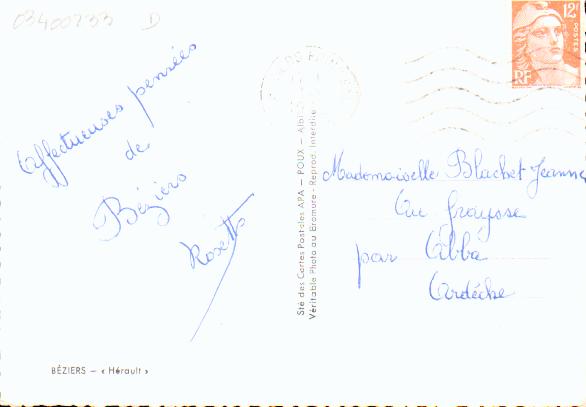 03400733 D
12F
POSTES
RF
Affectueuses pensées
de
Béziers
Rosette
Sté des Cartes Postales APA — POUX — Albi
Véritable Photo au Bromure - Reprod. Interdite
Mademoiselle Blachet Jeanne
par Ribba
Ardèche
BÉZIERS — « Hérault »